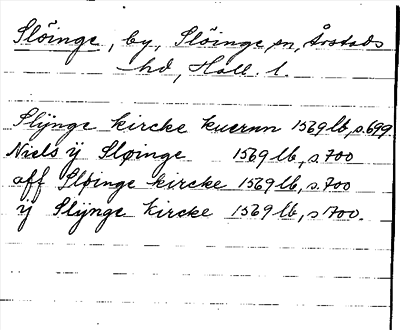 Slöinge, by, Slöinge sn, Årstads
hd, Hall. l.
Slÿnge kircke kuernn 1569 lb, s. 699
Niels ÿ Sløinge 1569 lb, s 700
aff Sløinge kircke 1569 lb, s. 700
ÿ Slÿnge kircke 1569 lb, s 700.